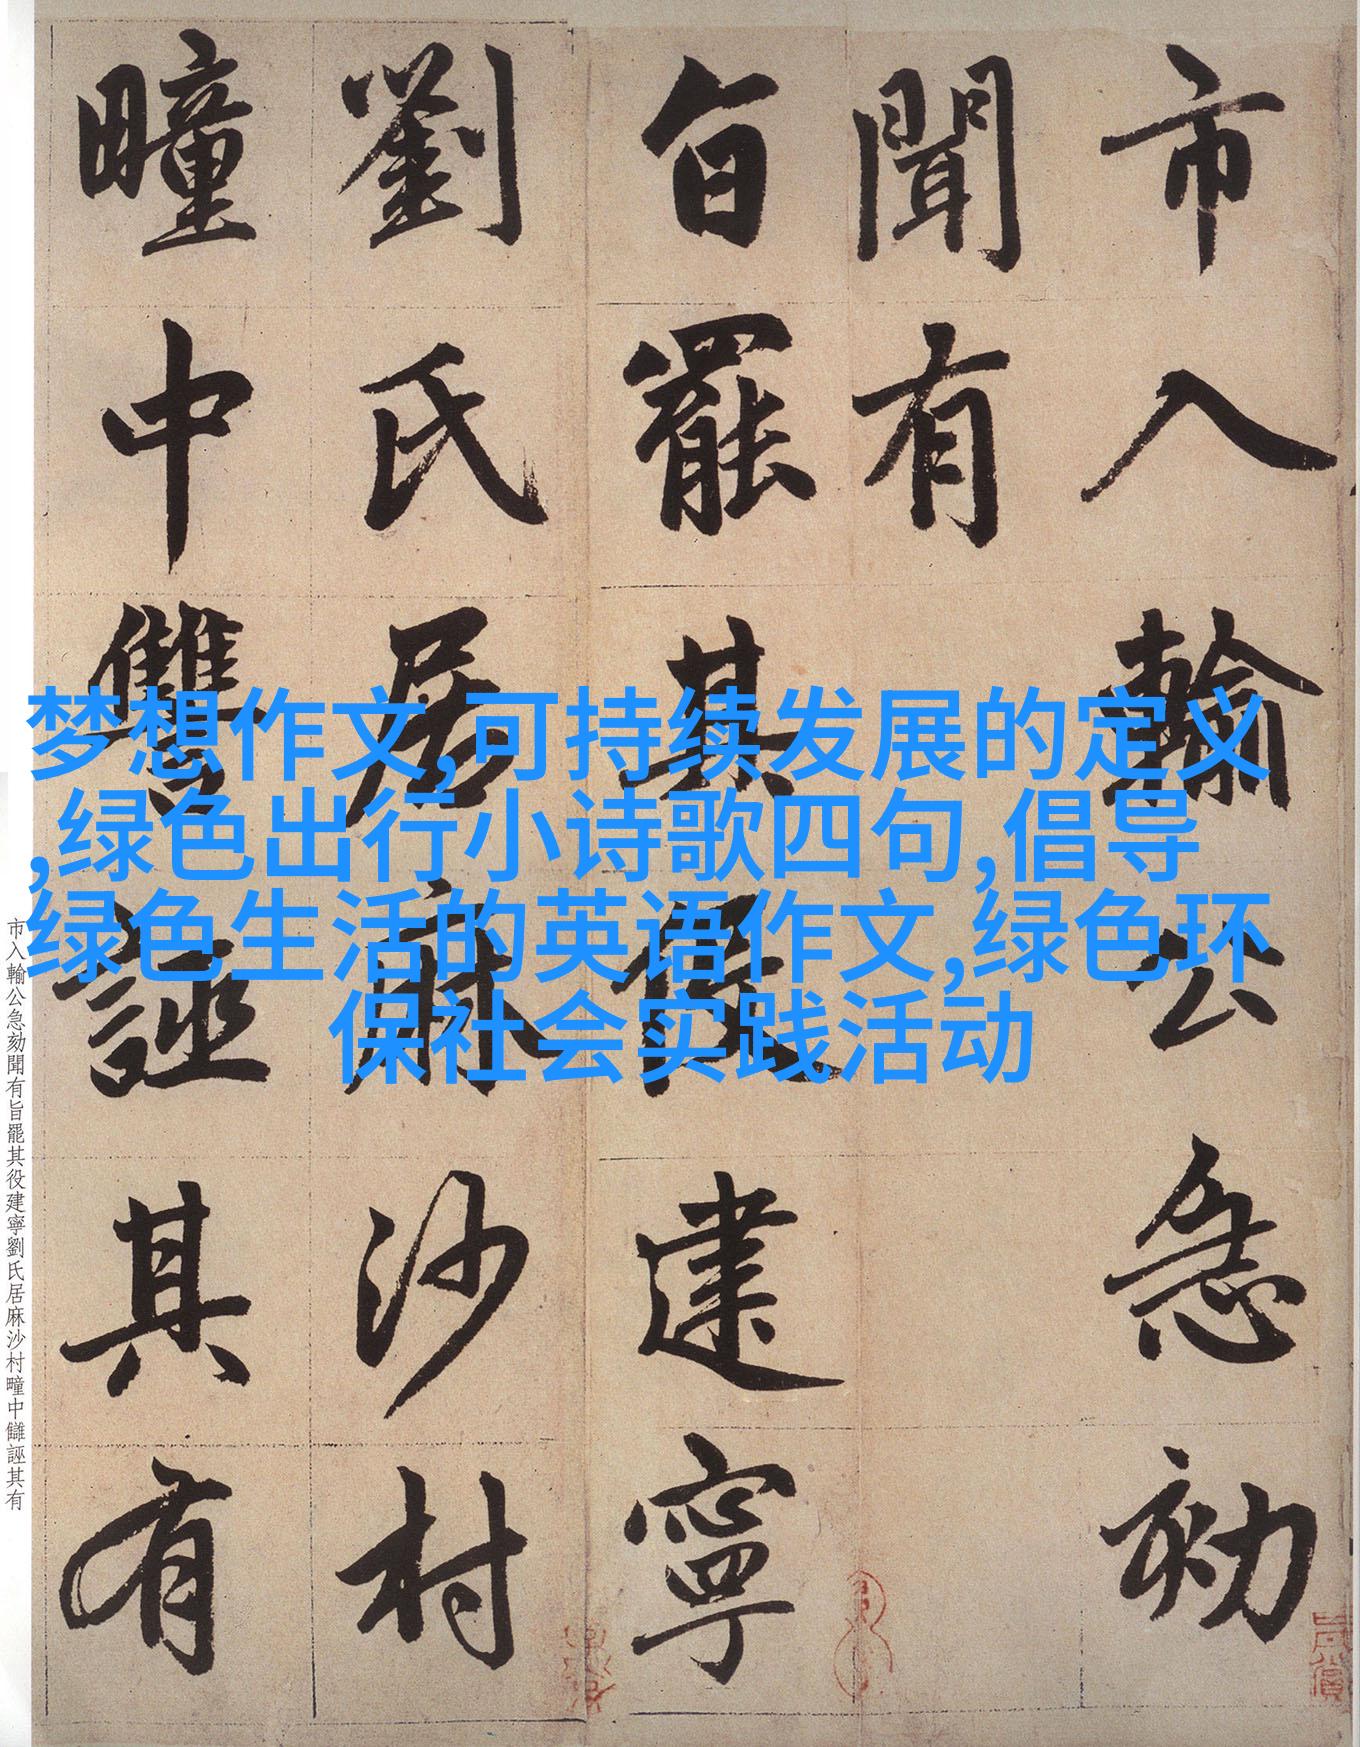 市入輸公急劾
聞有
旨罷其役建寧
劉氏居麻沙村
疃中讎誣其有
梦想作文,可持续发展的定义
,绿色出行小诗歌四句,倡导
绿色生活的英语作文,绿色环
保社会实践活动
市入輸公急劾聞有旨罷其役建寧劉氏居麻沙村疃中讎誣其有